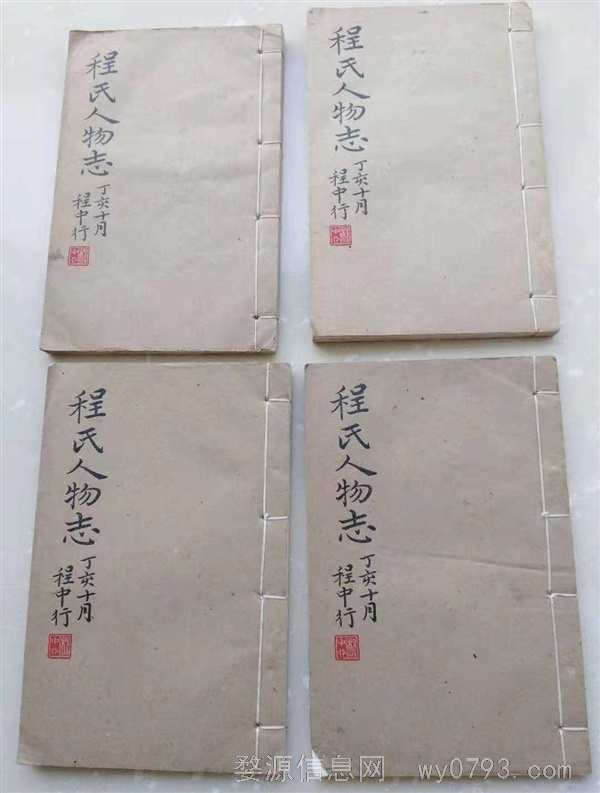 程氏人物志
丁亥十月
程中行
程氏人物志
丁亥十月
程中行
程氏人物志
丁亥十月
程中行
程氏人物志
丁亥十月
程中行
婺源信息网 wy0793.com